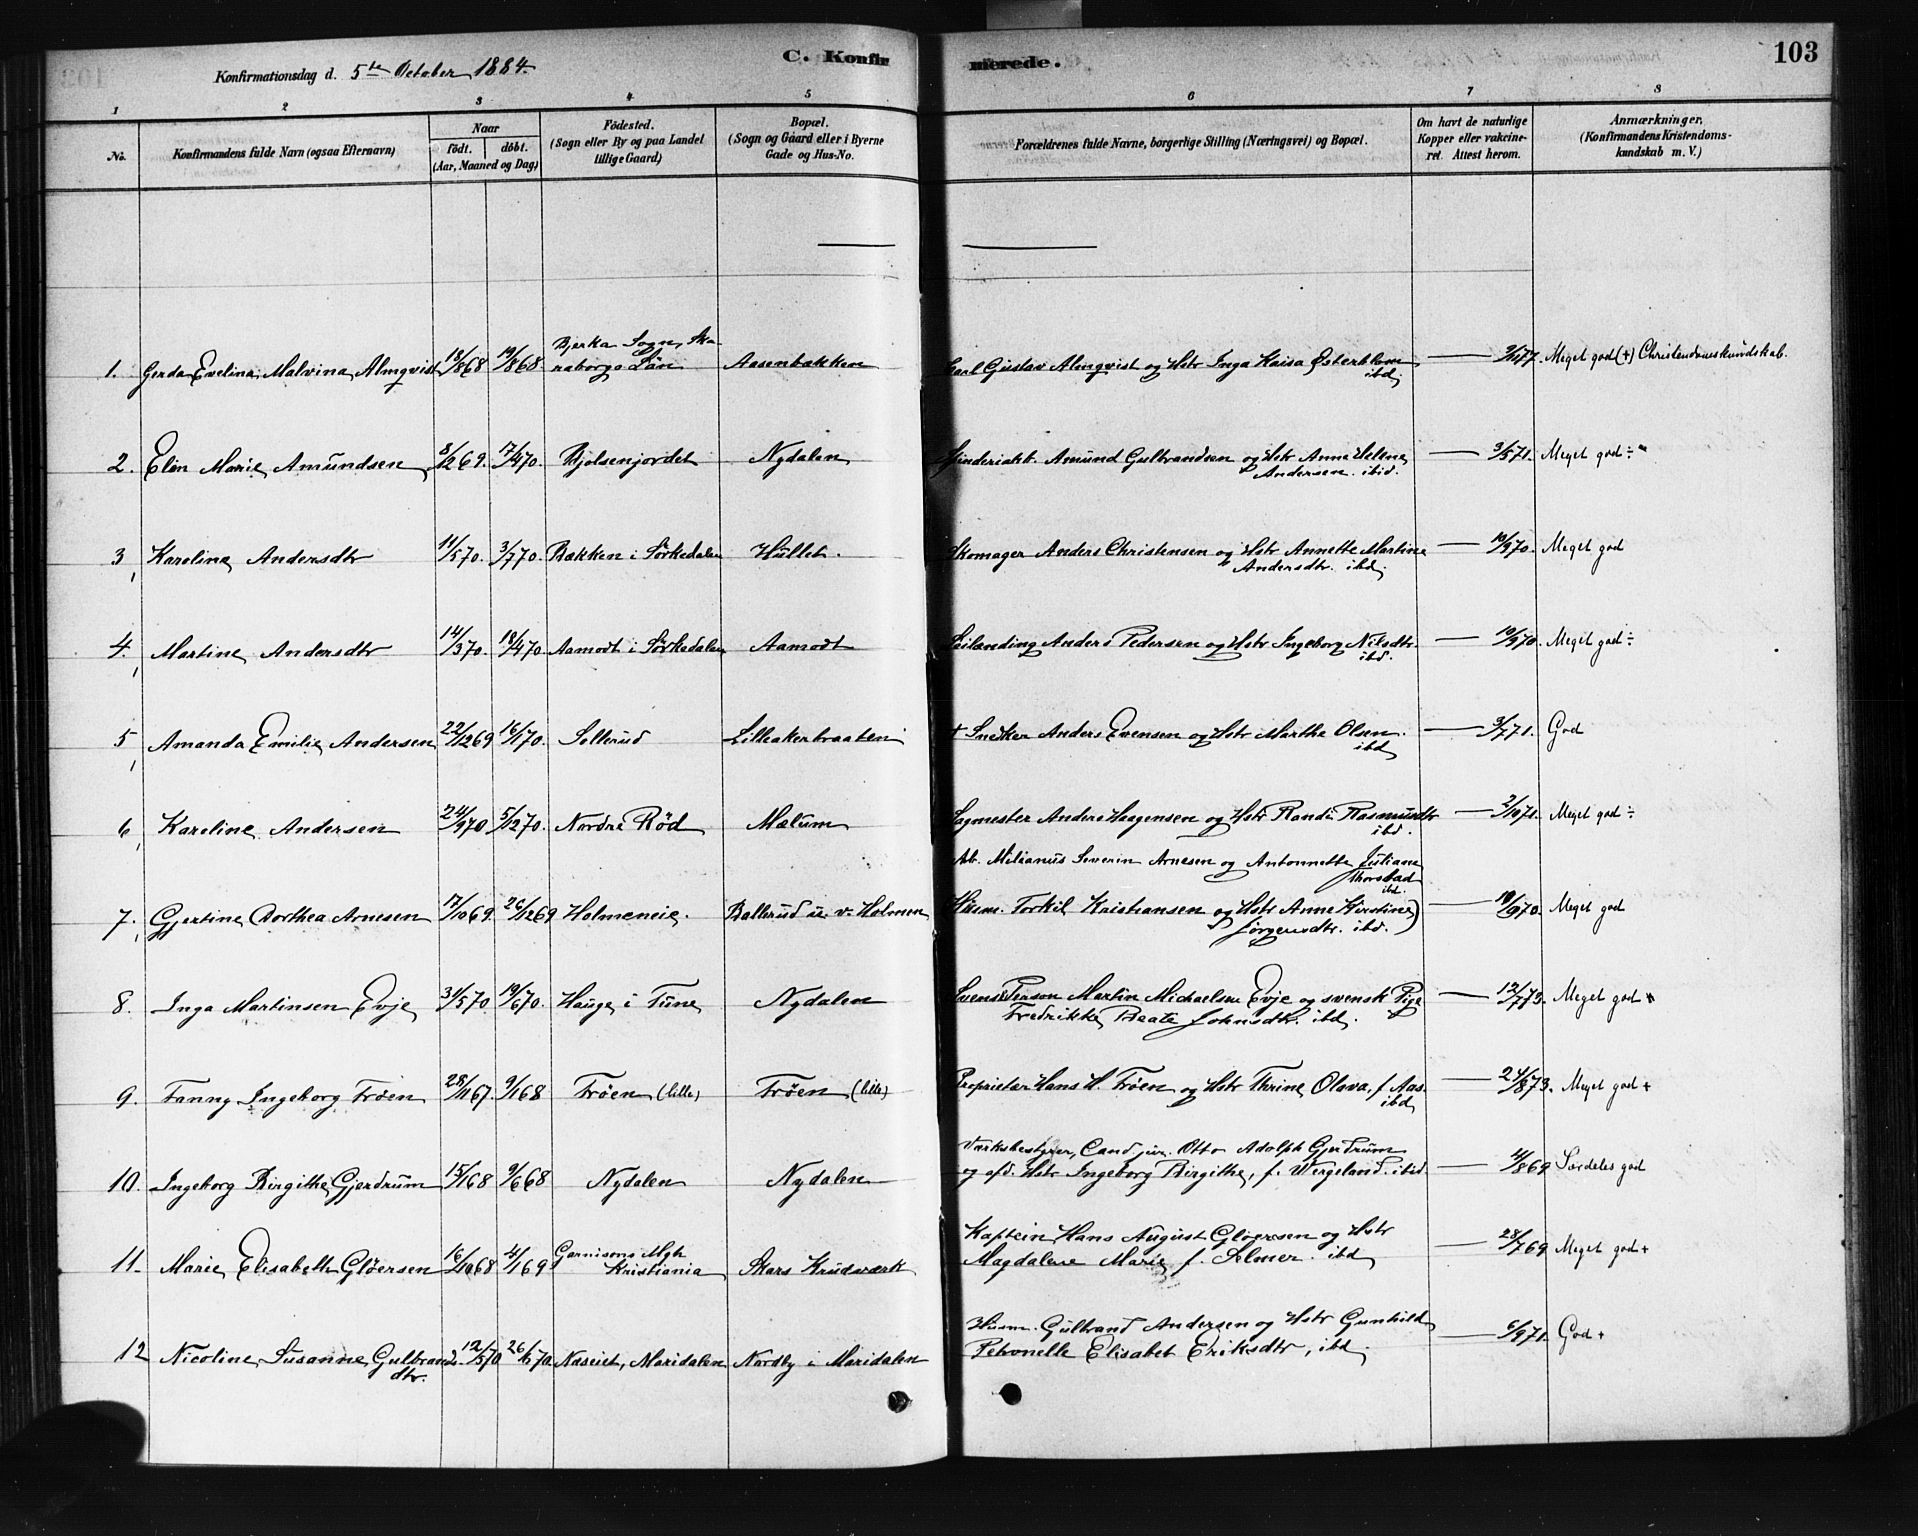 Konfirmationsdag d. 5te October 1884.
C. Konfirmerede.
103
1 2 3 4 5 6 7 8
No.
Konfirmandens fulde Navn (ogsaa Efternavn)
Naar
födt. döbt.
(Aar, Maaned og Dag)
Födested.
(Sogn eller By og paa Landet
tillige Gaard)
Bopæl.
(Sogn og Gaard eller i Byerne
Gade og Hus-No.
Forældrenes fulde Navne, borgerlige Stilling (Næringsvei) og Bopæl.
Om havt de naturlige
Kopper eller vakcine-
ret. Attest herom.
Anmærkninger,
(Konfirmandens Kristendoms-
kundskab m. V.)
1. Gerda Evelina Malvina Almqvist 18/868 19/868 Bjerka Sogn, Ska-
raborgs Län Aasenbakken Carl Gustav Almqvist og Hstr Inga Kaisa Österblom
ibd. Meget god (+) Christendomskundskab.
2. Elen Marie Amundsen 8/1269. 17/470. Bjølsenjordet Nydalen Spinderiarb. Amund Gulbrandsen og Hstr Anne Helene
Andersen. ibid. — 3/571. Meget god ÷
3, Karoline Andersdtr 11/570. 3/770. Bækken i Sørkedalen Hullet. Skomager Anders Christensen og Hstr Annette Martine
Andersdtr. ibd. — 10/970. Meget god
4. Martine Andersdtr 14/370. 18/470 Aamodt i Sørkedalen Aamodt Leilænding Anders Pedersen og Hstr Ingeborg Nilsdtr.
ibd. — 10/970. Meget god ÷
5, Amanda Emilie Andersen 22/1269 16/170. Sollerud Lilleakerbraaten † Snekker Anders Evensen og Hstr Marthe Olsen.
ibd — 3/771. God
6, Karoline Andersen 24/970 5/1270. Nordre Rød Mælum Sagmester Anders Haagensen og Hstr Randi Rasmusdtr
ibd. — 2/1071. Meget god ÷
Arb. Milianus Severin Arnesen og Antonnette Juliane
Thorstad
ibd.
7. Gjertine Dorthea Arnesen 17/1069. 26/1269 Holmeneie. Ballerud u. v. Holmen Husm. Torkil Kristiansen og Hstr Anne Kirstine)
Jörgensdtr. ibd. — 10/970. Meget god
8. Inga Martinsen Evje 31/570 19/670. Hauge i Tune Nydalen Svensk Person Martin Michaelsen Evje og svensk Pige
Fredrikke Beate Johnsdtr. ibd. — 12/773. Meget god +
9. Fanny Ingeborg Frøen 28/1167. 9/168 Frøen (lille) Frøen (lille) Proprietær Hans H. Frøen og Hstr Thrine Olava, f. Aas.
ibd — 24/873. Meget god +
10. Ingeborg Birgithe Gjerdrum 15/168 9/668 Nydalen Nydalen Værksbestyrer, Cand. jur. Otto Adolph Gjerdrum
og afd. Hstr Ingeborg Birgithe, f. Wergeland. ibid — 4/869 Særdeles god
11. Marie Elisabeth Gløersen 16/1068 4/169 Garnisons Mgh
Kristiania Skars Krudværk Kaptein Hans August Gløersen og Hstr
Magdalene Marie f. Selmer. ibd — 28/769 Meget god +
12 Nicoline Susanne Gulbrands-
dtr. 12/570 26/670 Naseiet, Maridalen Nordby i Maridalen Husm. Gulbrand Andersen og Hstr Gunhild
Petronelle Elisabet Eriksdtr, ibd. — 6/971. God +